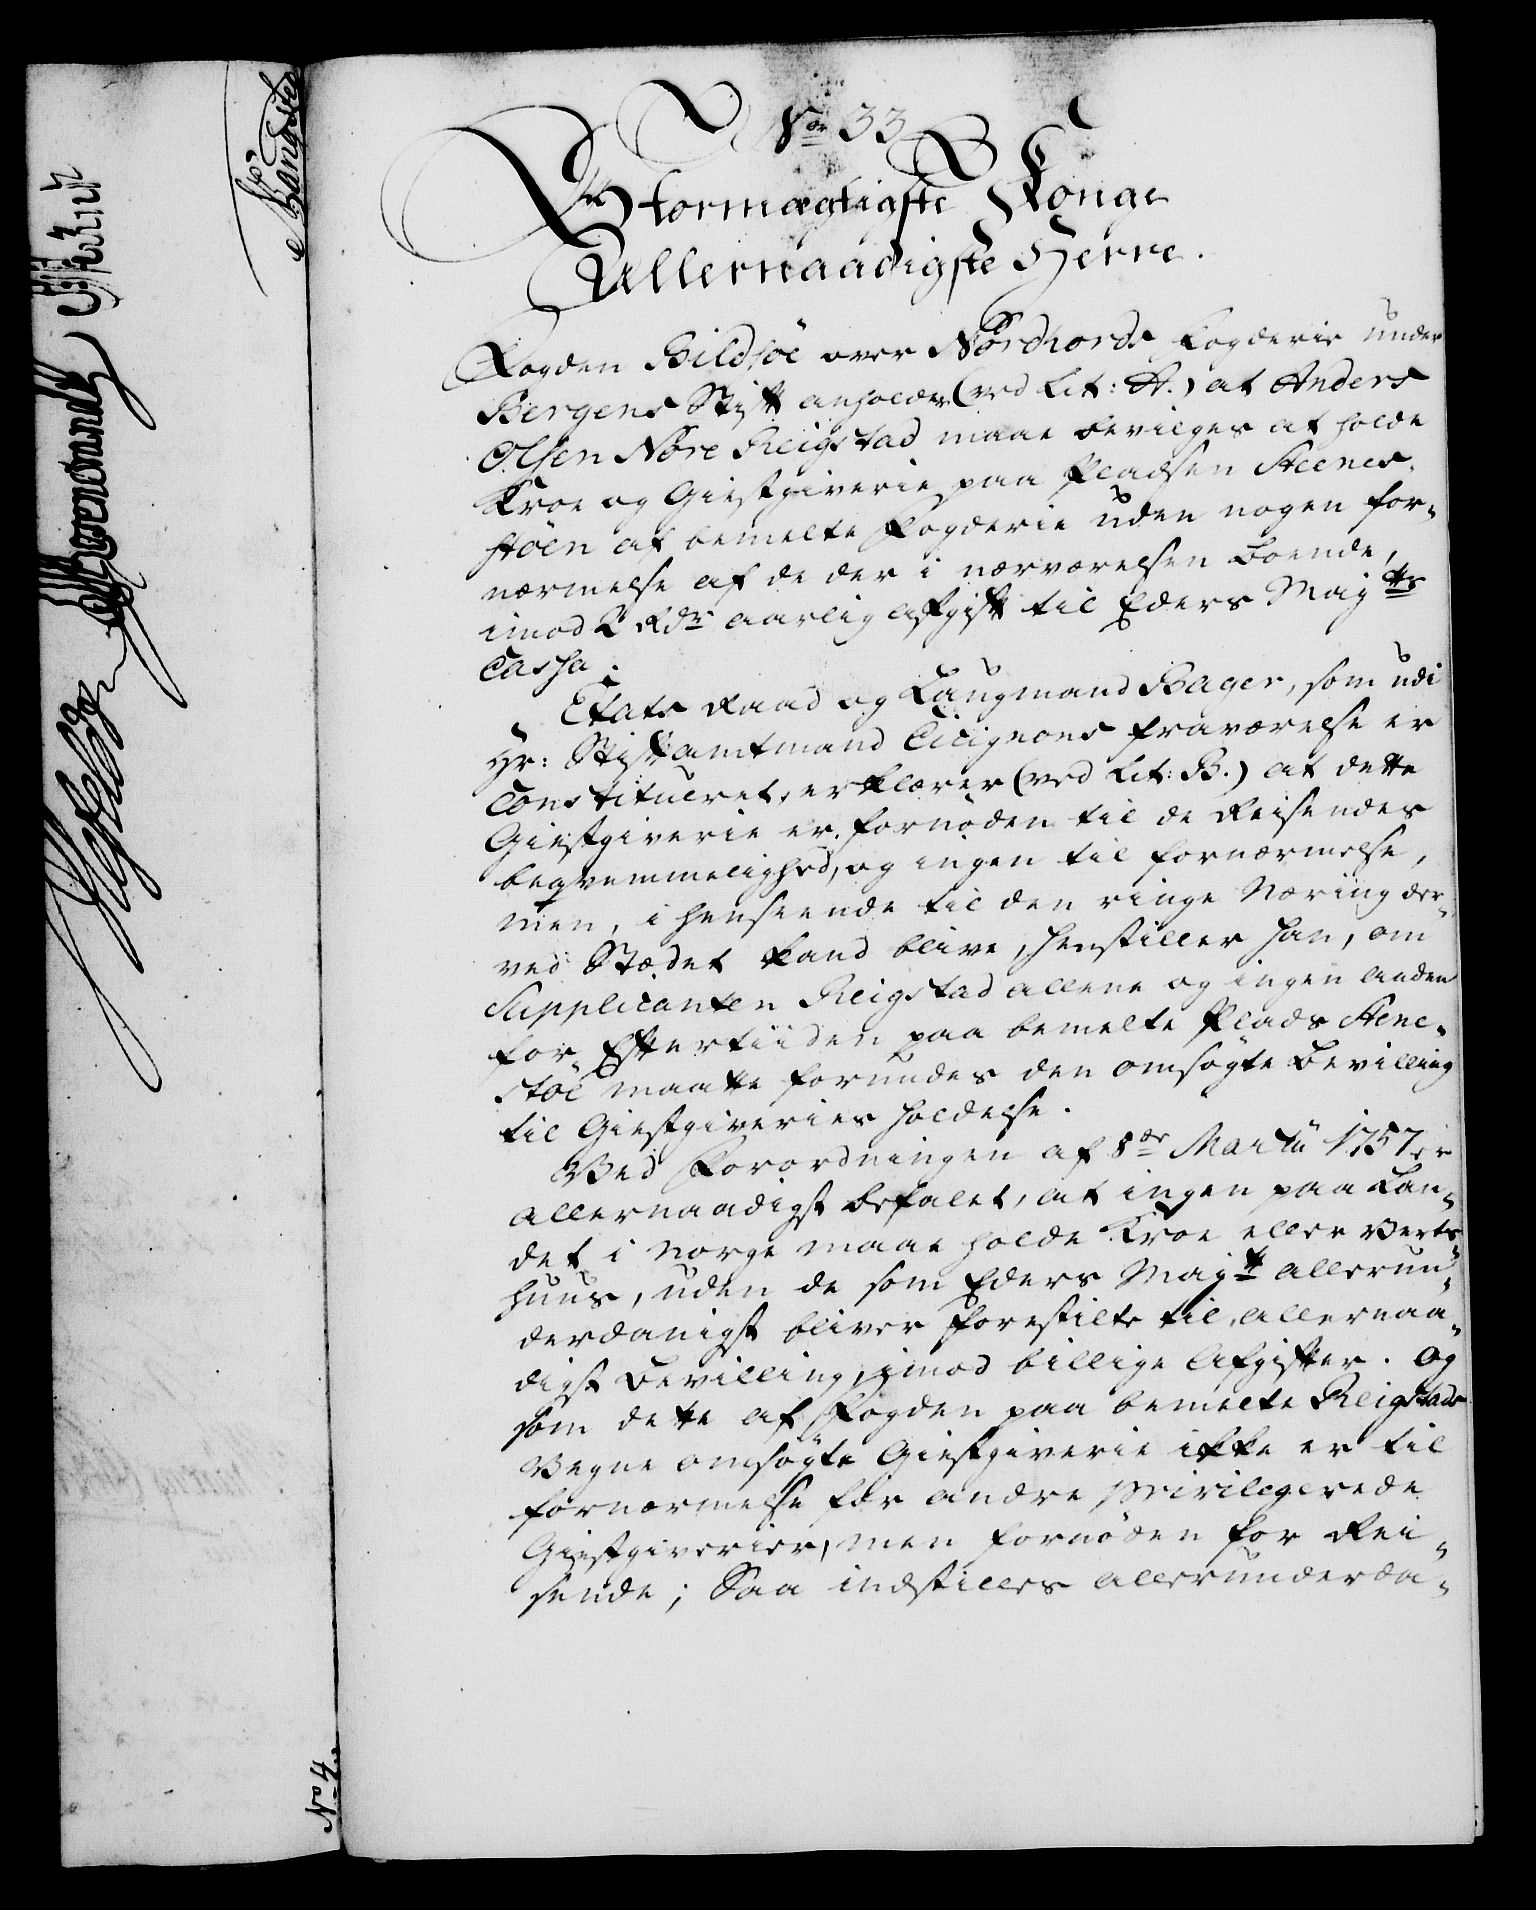 No 33
Stormægtigste Konge
Allernaadigste Herre.
Fogden Bildsöe over Nordhords Fogderie under
Bergens Stift anholder (ved Lit: A.) at Anders
Olsen Nöre Reigstad maae bevilges at holde
Kroe og Giestgiverie paa Pladsen Steenes-
stöen af bemelte Fogderie uden nogen for-
nærmelse af de der i nærværelsen boende,
imod 2 Rdr aarlig Afgift til Eders Majts
Cassa.
Etats Raad og Laugmand Bager, som udi
Hr: Stiftamtmand Cicignons fraværelse er
Constitueret, erklærer (ved Lit: B.) at dette
Giestgiverie er fornöden til de Reisendes
beqvemmelighed, og ingen til fornærmelse,
men, i henseende til den ringe Næring der-
ved Stædet kand blive, henstiller han, om
Supplicanten Reigstad allene og ingen anden
for Eftertiiden paa bemelte Plads Stene-
stöe maatte forundes den omsögte Bevilling
til Giestgiveries holdelse.
Ved Forordningen af 8de Martii 1757 er
allernaadigst befalet, at ingen paa Lan-
det i Norge maae holde Kroe eller Verts-
huus, uden de som Eders Majt allerun-
derdanigst bliver forestilte til, allernaa-
digst Bevilling, imod billige Afgifter. Og
som dette af Fogden paa bemelte Reigstads
Vegne omsögte Giestgiverie ikke er til
fornærmelse for andre privilegerede
Giestgiverier, men fornöden for Rei-
sende; Saa indstilles allerunderda-
No 4.